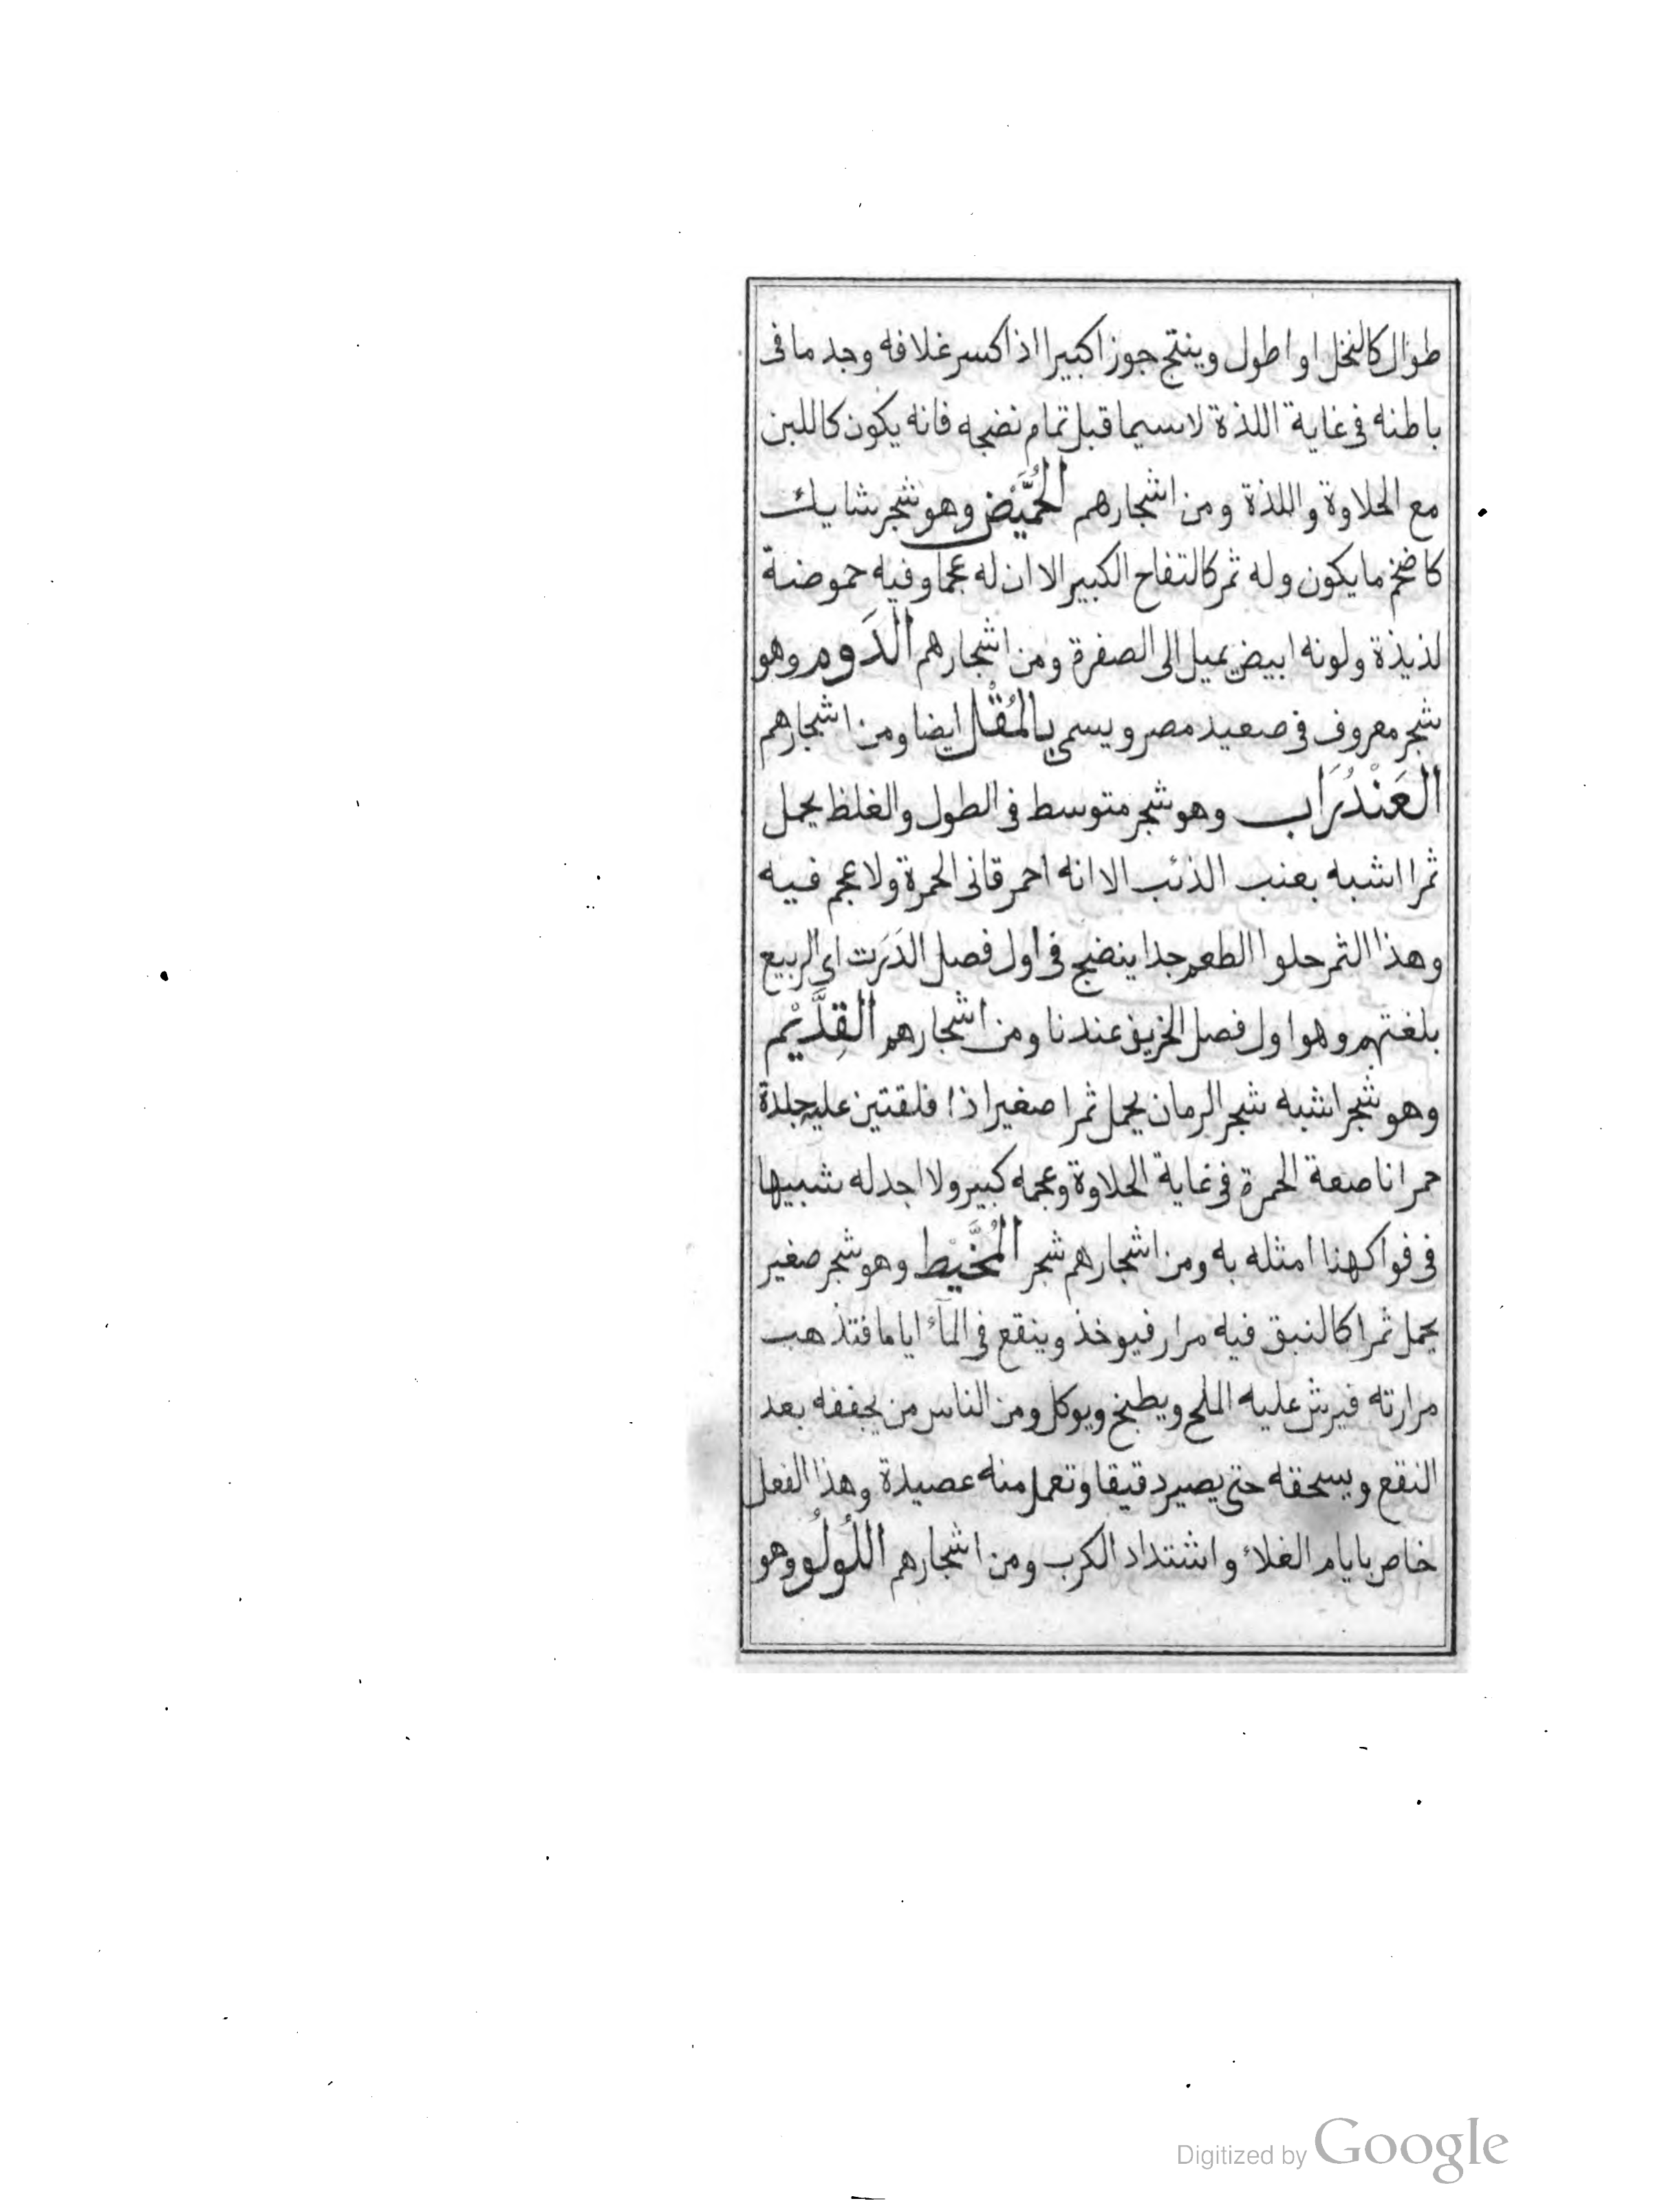 طوال كالنخل او اطول وينتج جوزا كبيرا اذا كسر غلافه وجد ما فى
باطنه فى غاية اللذة لاسيما قبل تمام نضجه فانه يكون كاللبن
مع الحلاوة واللذة ومن اشجارهم الحُمَّيْض وهو شجر شايك
كاضخم ما يكون وله ثمر كالتفاح الكبير الا ان له عجما وفيه حموضة
لذيذة ولونه ابيض يميل الى الصفرة ومن اشجارهم الدَوم وهو
شجر معروف فى صعيد مصر ويسمى بالمُقْل ايضا ومن اشجارهم
العَنْدُرَاب وهو شجر متوسط فى الطول والغلظ يحمل
ثمرا اشبه بعنب الذئب الا انه احمر قانى الحمرة ولا عجم فيه
وهذا الثمر حلوا الطعم جدا ينضج فى اول فصل الدَرَت اى الربيع
بلغتهم وهو اول فصل الخريف عندنا ومن اشجارهم القِدَّيْم
وهو شجر اشبه شجر الرمان يحمل ثمرا صغيرا ذا فلقتين عليه جلدة
حمرا ناصعة الحمرة فى غاية الحلاوة وعجمه كبير ولا اجد له شبيها
فى فواكهنا امثله به ومن اشجارهم شجر المُخَّيْط وهو شجر صغير
يحمل ثمرا كالنبق فيه مرار فيوخذ وينقع فى المآء اياما فتذهب
مرارته فيرش عليه الملح ويطبخ ويوكل ومن الناس من يجففه بعد
النقع ويسحقه حتى يصير دقيقا وتعمل منه عصيدة وهذا الفعل
خاص بايام الغلاء واشتداد الكرب ومن اشجارهم اللُولُو وهو
Digitized by Google